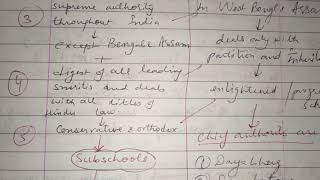 supreme authority
③ throughout India
↓
except Bengal & Assam
+
④ digest of all leading
smritis and deals
with all titles of
Hindu law
↓
⑤ Conservative & orthodox
↓
Subschools
In West Bengal & Assam
↓
deals only with
partition and
↓
enlightened /
↓
Chief authorities are
① Dayabhag